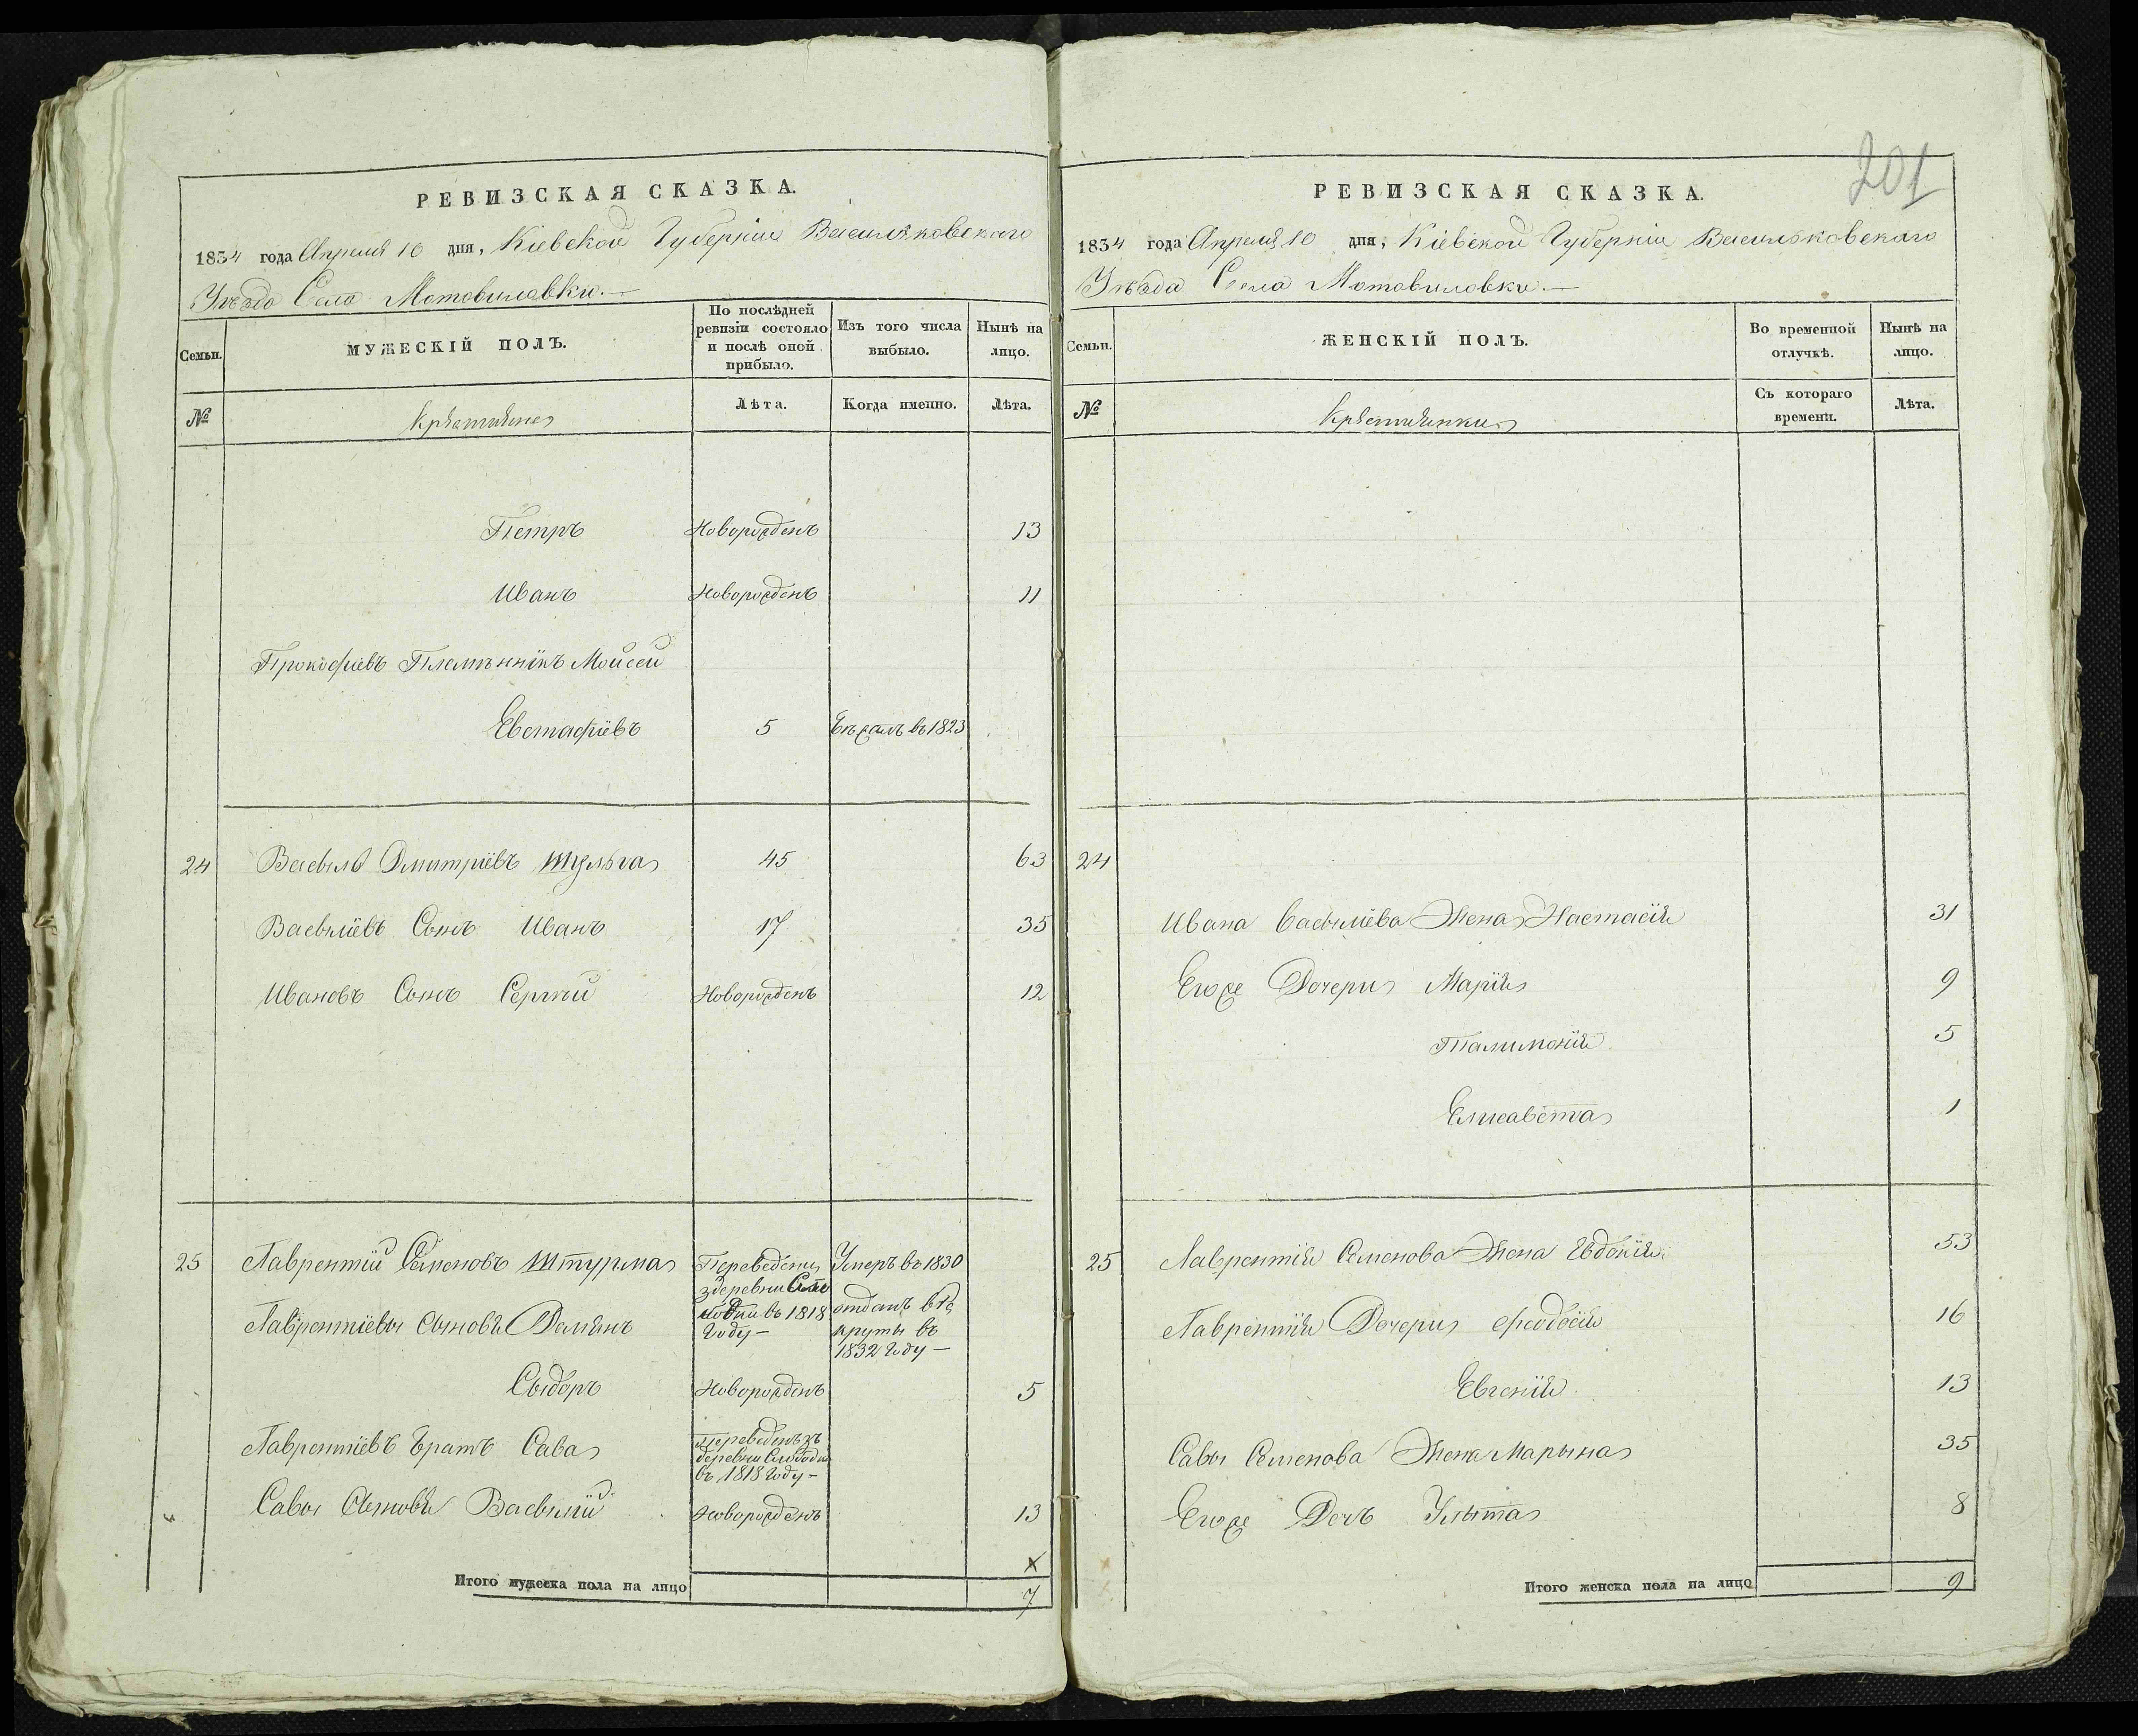 РЕВИЗСКАЯ СКАЗКА.
1834 года Апреля 10 дня, Кіевской Губерніи Васильковского
Уѣзда Села Мотовиловки.—
Семьи.
МУЖЕСКІЙ ПОЛЪ.
По послѣдней ревизіи состояло и послѣ оной прибыло.
Изъ того числа выбыло.
Нынѣ на лицо.
№
Крѣстяне
Лѣта.
Когда именно.
Лѣта.
Петръ Новорожденъ 13
Иванъ Новорожденъ 11
Прокофіевъ Племѣнникъ Мойсей
Евстафіевъ 5 Бѣжалъ въ 1823
24 Васылій Дмитріевъ Шульга 45 63
Васыліевъ Сынъ Иванъ 17 35
Ивановъ Сынъ Сергѣй Новорожденъ 12
25 Лаврентій Семеновъ Штурма Переведены Умеръ въ 1830
здеревни
въ 1818
Лаврентіевы Сыновя Демянъ году— отданъ вРе
круты въ
1832 году—
Сыдоръ Новорожденъ 5
Лаврентіевъ Братъ Сава Переведенъ зъ
деревни Слободки
въ 1818 году—
Савы Сыновя Васылій Новорожденъ 13
х
Итого мужеска пола на лицо 7
201
РЕВИЗСКАЯ СКАЗКА.
1834 года Апреля 10 дня, Кіевской Губерніи Васильковского
Уѣзда Села Мотовиловки.—
Семьи.
ЖЕНСКІЙ ПОЛЪ.
Во временной отлучкѣ.
Нынѣ на лицо.
№
Крѣстянки
Съ котораго времени.
Лѣта.
24
Ивана Васыліева Жена Настасія 31
Егоже Дочери Марія 9
Палимонія 5
Елисавета 1
25 Лаврентія Семенова Жена Евдокія 53
Лаврентія Дочери Феодосія 16
Евгенія 13
Савы Семенова Жена Марына 35
Егоже Дочъ Улыта 8
Итого женска пола на лицо 9